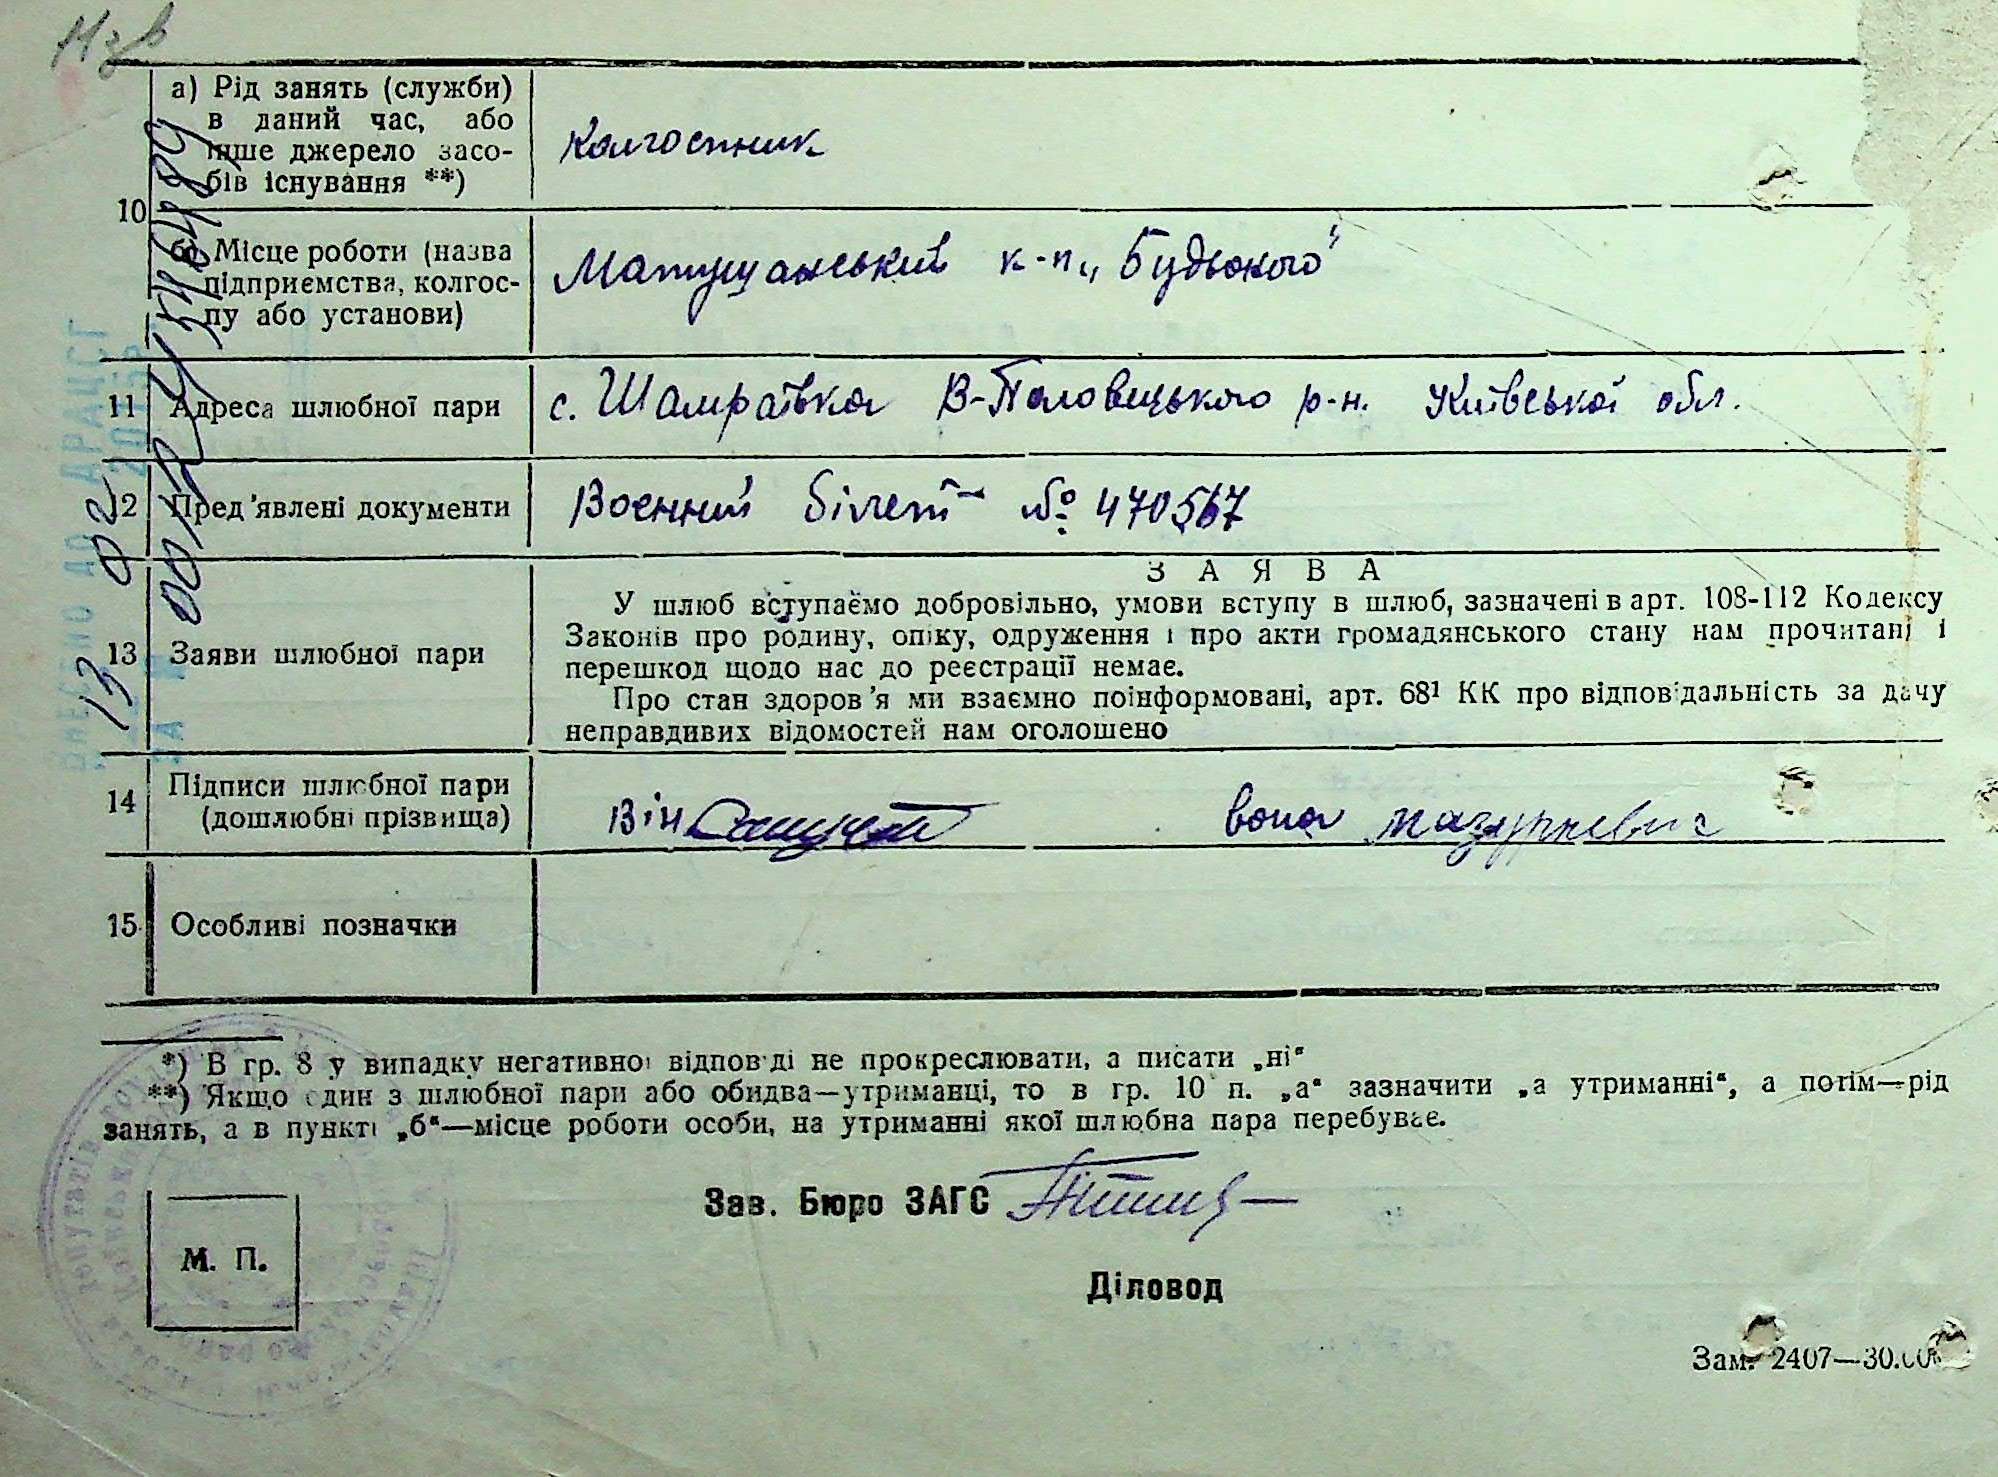 а) Рід занять (служби)
в даний час, або
інше джерело засо-
бів існування **)
Колгоспник
10
б) Місце роботи (назва
підприємства, колгос-
пу або установи)
к-п „Будьоного"
11 Адреса шлюбної пари с. Шамраївка В-Половецького р-н. Київської обл.
12 Пред'явлені документи Воєнний білет № 470567
З А Я В А
У шлюб вступаємо добровільно, умови вступу в шлюб, зазначені в арт. 108-112 Кодексу
Законів про родину, опіку, одруження і про акти громадянського стану нам прочитані і
перешкод щодо нас до реєстрації немає.
13 Заяви шлюбної пари
Про стан здоров'я ми взаємно поінформовані, арт. 68¹ КК про відповідальність за дачу
неправдивих відомостей нам оголошено
14 Підписи шлюбної пари
(дошлюбні прізвища)
Він вона Мазуркевич
15 Особливі позначки
*) В гр. 8 у випадку негативної відповіді не прокреслювати, а писати „ні"
**) Якщо один з шлюбної пари або обидва—утриманці, то в гр. 10 п. „а" зазначити „а утриманні", а потім—рід
занять, а в пункті „б"—місце роботи особи, на утриманні якої шлюбна пара перебуває.
Зав. Бюро ЗАГС
М. П.
Діловод
Зам. 2407—30.00
ВНЕСЕНО ДО ДРАЦСГ
ЗА №